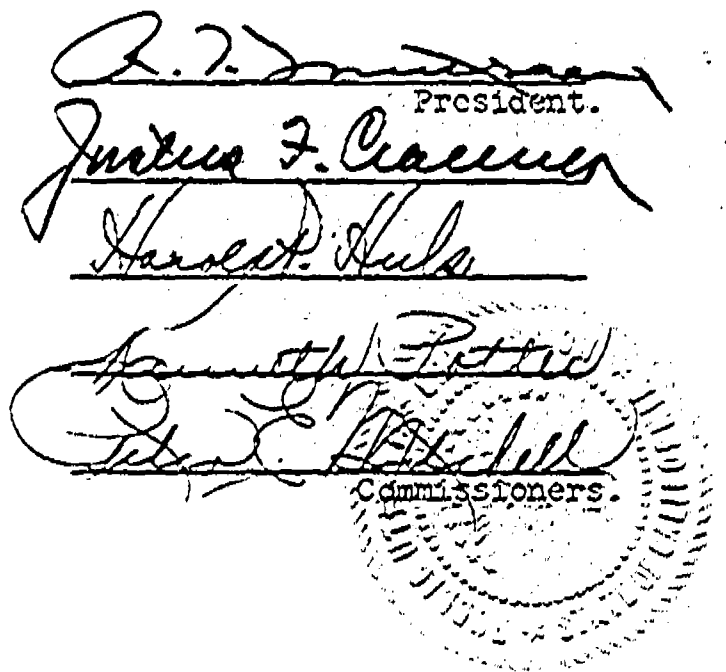 President.
Justus F. Craemer
Harold P. Huls
Kenneth Potter
Peter E. Mitchell
Commissioners.
STATE OF CALIFORNIA